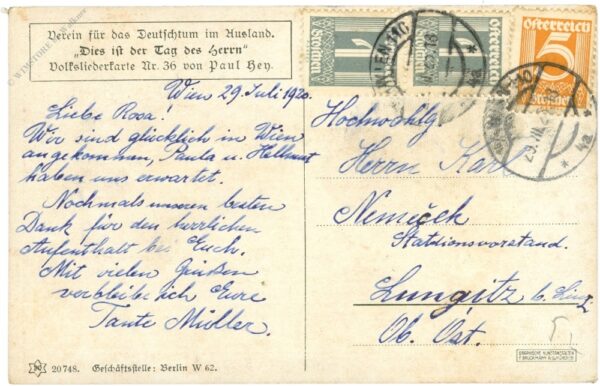 Verein für das Deutschtum im Ausland.
"Dies ist der Tag des Herrn"
Volksliederkarte Nr. 36 von Paul Hey.
Wien 29. Juli 1920.
Liebe Rosa!
Wir sind glücklich in Wien
angekommen, Paula u. Hellmut
haben uns erwartet.
Nochmals unseren besten
Dank für den herrlichen
Aufenthalt bei Euch.
Mit vielen Grüßen
verbleibe ich Eure
Tante Müller.
Österreich
5
Hochwohlg.
Herrn Karl
Nemeček
Statdionsvorstand.
Lungitz b. Linz
Ob. Öst.
20748. Geschäftsstelle: Berlin W 62.
GRAPHISCHE KUNSTANSTALTEN
F. BRUCKMANN A.G. MÜNCHEN